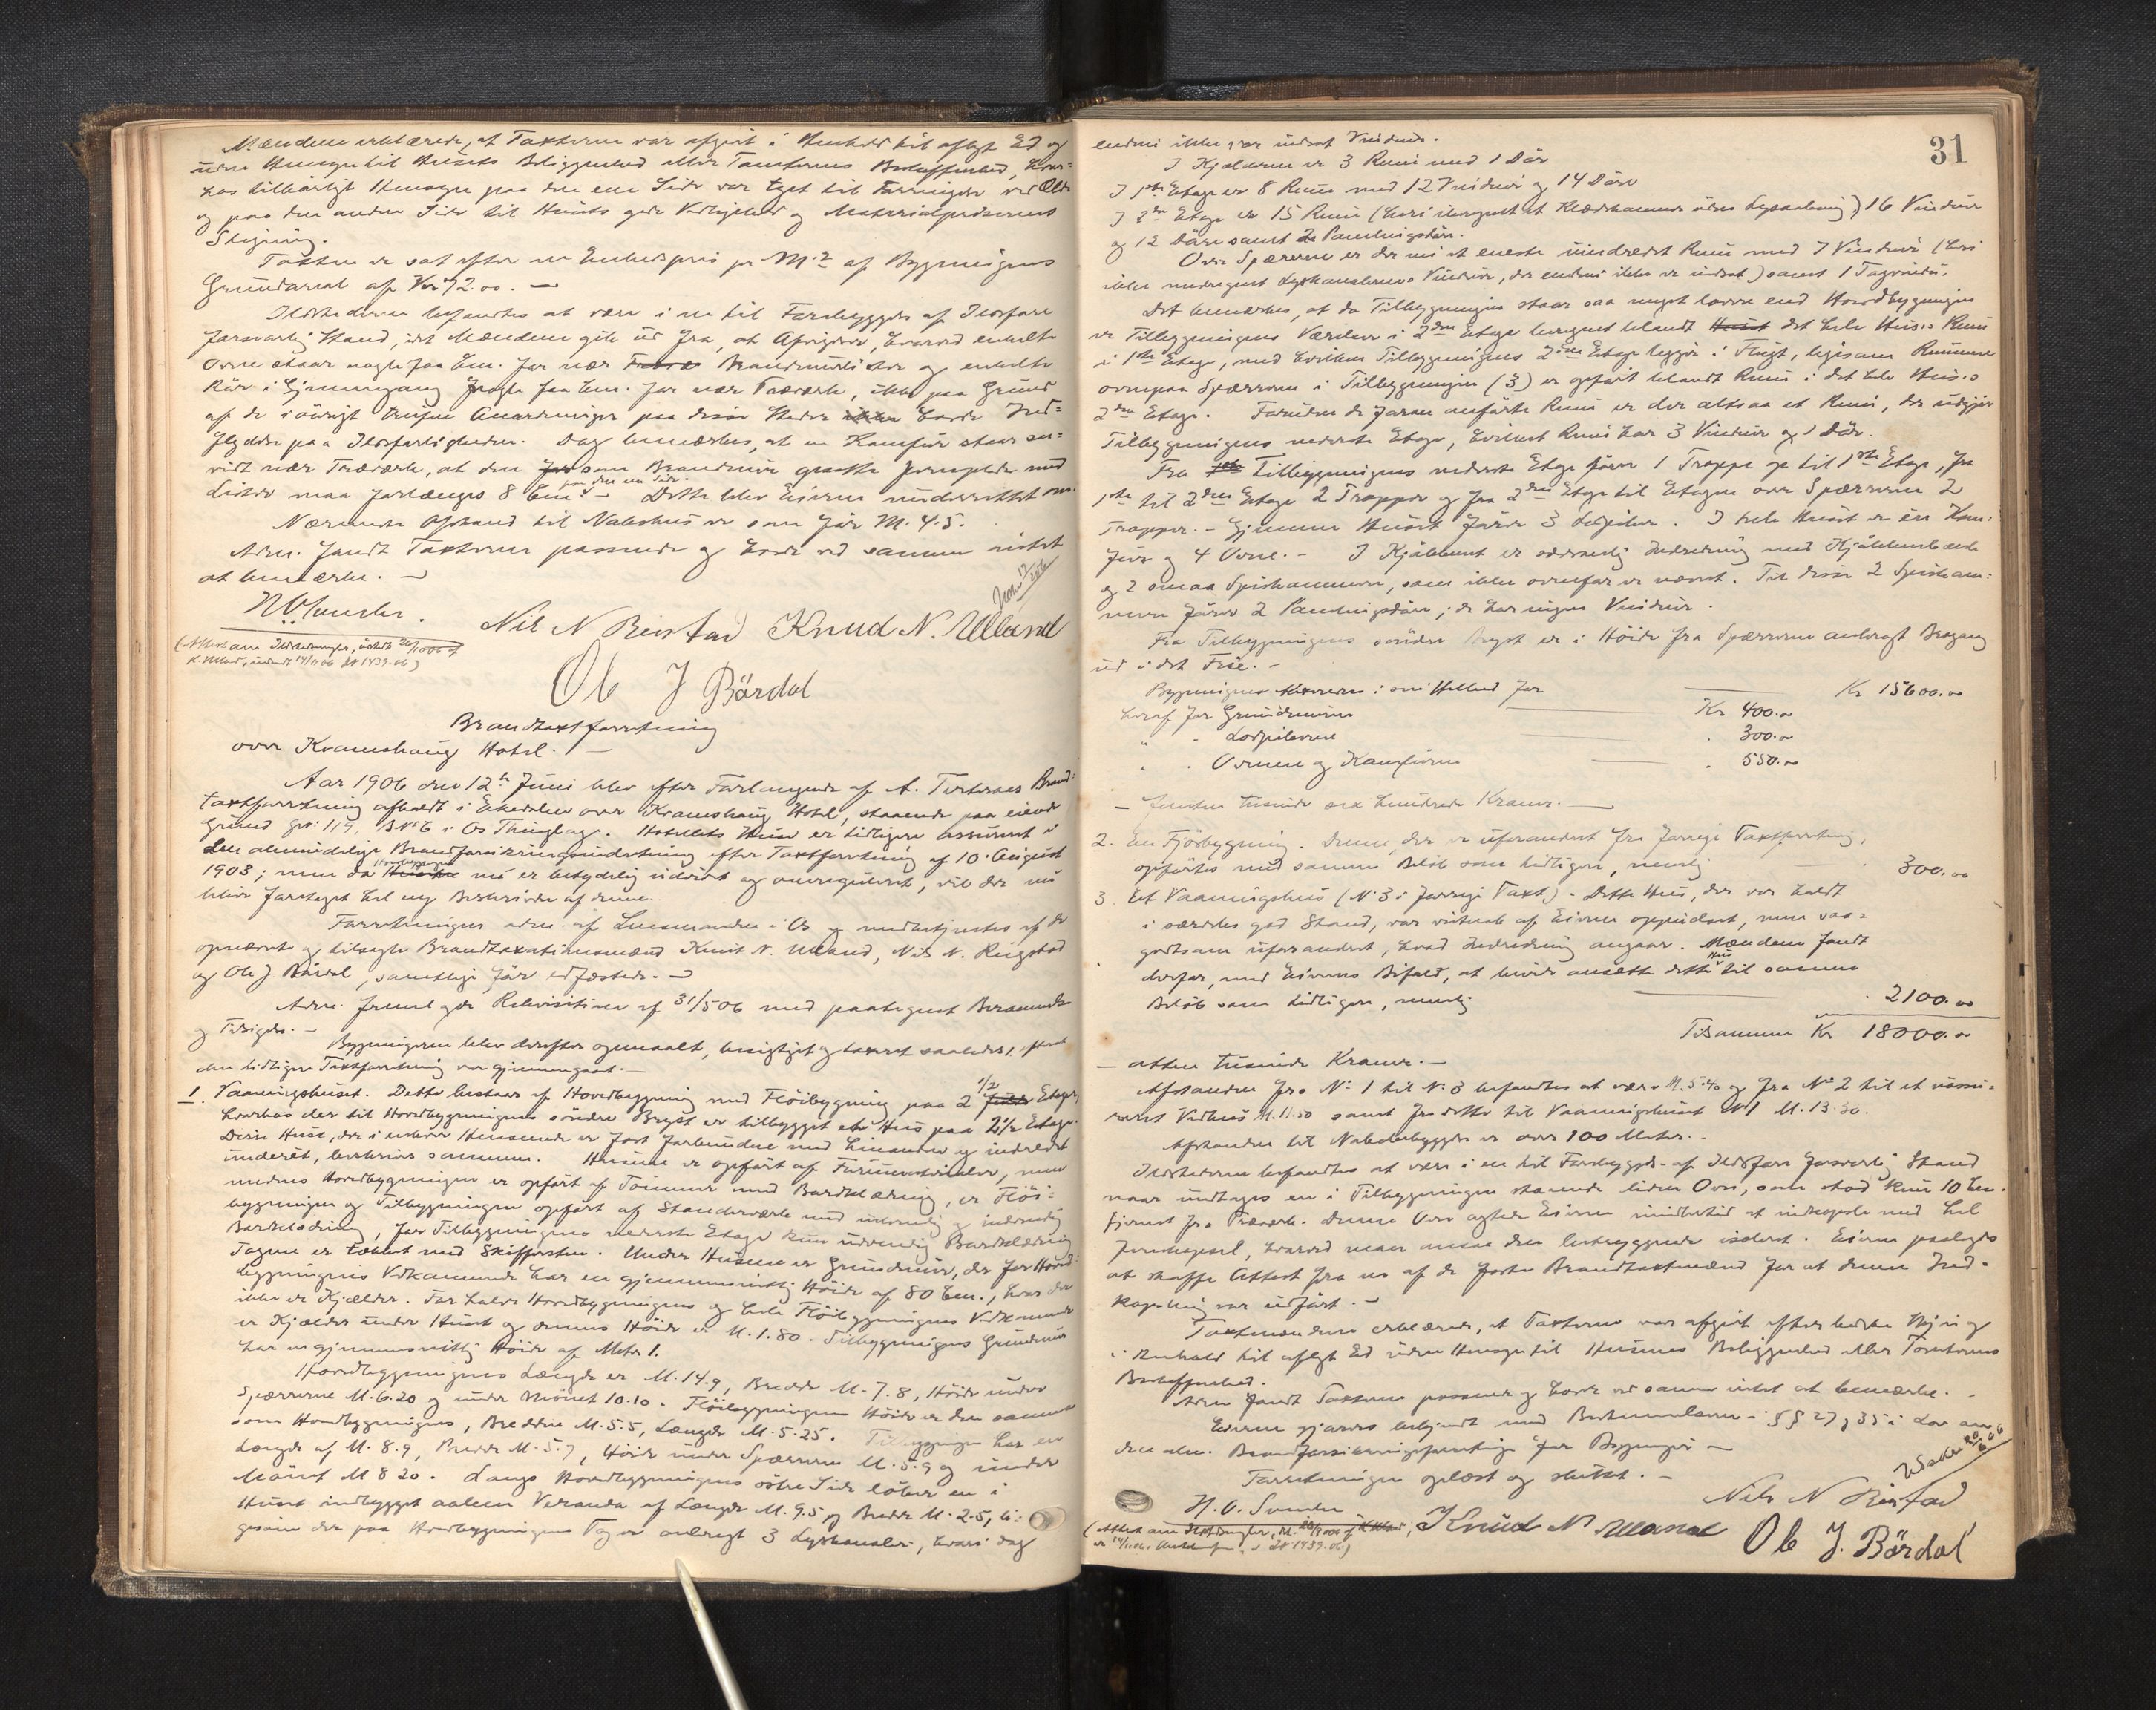 Mændene erklærede, at Taxterne var afgivt i Henhold til aflagt Ed og
uden Hensyn til Husets Beliggenhed eller Tomternes Beskaffenhed, hvor=
hos tilbørligt Hensyn paa den ene Side var taget til Forringelse ved Ælde
og paa den anden Side til Husets gode Vedligehold og Materialprisernes
Stigning.
Taxten er sat efter en Enhedspris pr M.² af Bygningens
Grundareal af Kr 72.00. —
Ildstederne befandtes at være i en til Forebyggelse af Ildsfare
forsvarlig Stand, idet Mændene gik ud fra, at Afvigelser, hvorved enkelte
Ovne staar nogle faa Cm. for nær Brandmurlister og enkelte
Rør i Gjennemgang nogle faa Cm. for nær Træværk, ikke paa Grund
af de i øvrigt trufne Anordninger paa disse Steder havde Ind=
flydelse paa Ildsfarligheden. Dog bemærkes, at en Komfur staar saa=
vidt nær Træværk, at den som Brandmur opsatte Jernplade med
Lister maa forlænges 8 Cm. paa den ene Side. — Dette blev Eieren underrettet om.
Nærmeste Afstand til Nabohus er som før M. 4.5.
Adm. fandt Taxterne passende og havde ved samme intet
at bemærke. —
N O Sunder.
Nils N Reistad Knud N. Ulland
(Attest om Ildstedernes, udstedt 20/10 06 af
K. Ulland, indsendt 14/11 06 JN 1439.06)
Ole J Bårdal
Brandtaxtforretning
over Kramshaug Hotel. —
Aar 1906 den 12te Juni blev efter Forlangende af A. Brand=
taxtforretning afholdt i over Kramshaug Hotel, staaende paa eiende
Grund Gno: 119, BNo 6 i Os Thinglag. Hotellets Huse er tidligere assureret i
den almindelige Brandforsikringsindretning efter Taxtforretning af 10. August
1903; men da Hovedbygningen nu er betydelig udvidet og omreguleret, vil der nu
blive foretaget hel ny Beskrivelse af denne.
Forretningen adm. af Lensmanden i Os og medbetjentes af de
opnævnte og tilsagte Brandtaxationsmænd Knut N. Ulland, Nils N. Reigstad
og Ole J Bårdal, samtlige før edfæstede. —
Adm. fremlagde Rekvisition af 31/5 06 med paategnet Berammelse
og Tilsigelse. —
Bygningerne blev derefter opmaalt, besigtiget og taxeret saaledes, efterat
den tidligere Taxtforretning var gjennemgaaet. —
1. Vaaningshuset. Dette bestaar af Hovedbygning med Fløibygning paa 2 1/2 Etager,
hvorhos der til Hovedbygningens søndre Bryst er tilbygget et Hus paa 2 1/2 Etage.
Disse Huse, der i enhver Henseende er fast forbundne med hinanden og indredet
under ét, beskrives sammen. Husene er opført af Furumaterialer, men
medens Hovedbygningen er opført af Tømmer med Bordklædning, er Fløi=
bygningen og Tilbygningen opført af Standerværk med udvendig og indvendig
Bordklædning, for Tilbygningens nederste Etage kun udvendig Bordklædning
Tagene er tækket med Skifersten. Under Husene er Grundmur, der for Hoved=
bygningens Vedkommende har en gjennemsnitlig Høide af 80 Cm., hvor der
ikke er Kjælder. For halve Hovedbygningens og hele Fløibygningens Vedkommende
er Kjælder under Huset og dennes Høide er M. 1.80. Tilbygningens Grundmur
har en gjennemsnitlig Høide af Meter 1.
Hovedbygningens Længde er M. 14.9, Bredde M. 7.8, Høide under
Spærrerne M. 6.20 og under Mønet 10.10. Fløibygningens Høide er den samme
som Hovedbygningens, Bredden M. 5.5, Længde M. 5.25. Tilbygningen har en
Længde af M. 8.9, Bredde M. 5.7, Høide under Spærrerne M. 5.9 og under
Mønet M 8 20. Langs Hovedbygningens østre Side løber en i
Huset indbygget aaben Veranda af Længde M. 9.5 og Bredde M. 2.5, li=
gesom der paa Hovedbygningens Tag er anbragt 3 Lyskanaler, hvori dog
31
endnu ikke er indsat Vinduer.
I Kjælderen er 3 Rum med 1 Dør
I 1ste Etage er 8 Rum med 12 Vinduer og 14 Døre
I 2den Etage er 15 Rum (heri iberegnet et Klædekammer uden Lysaabning) 16 Vinduer
og 12 Døre samt 2 Panelingsdøre.
Over Spærrerne er der nu et eneste uindredet Rum med 7 Vinduer (heri
ikke medregnet Lyskanalernes Vinduer, der endnu ikke er indsat) samt 1 Tagvindu.
Det bemærkes, at da Tilbygningen staar saa meget lavere end Hovedbygningen
er Tilbygningens Værelser i 2den Etage beregnet blandt det hele Huses Rum
i 1ste Etage, med hvilken Tilbygningens 2den Etage ligger i Flugt, ligesom Rummene
ovenpaa Spærrerne i Tilbygningen (3) er opført blandt Rum i det hele Huses
2den Etage. Foruden de foran anførte Rum er der altsaa et Rum, der udgjør
Tilbygningens nederste Etage, hvilket Rum har 3 Vinduer og 1 Dør.
Fra Tilbygningens nederste Etage fører 1 Trappe op til 1ste Etage, fra
1ste til 2den Etage 2 Trapper og fra 2den Etage til Etagen over Spærrerne 2
Trapper. — Gjennem Huset fører 3 Ludpiber. I hele Huset er én Kom=
fur og 4 Ovne. — I Kjøkkenet er sædvanlig Indredning med Kjøkkenbænk
og 2 smaa Spiskammere, som ikke ovenfor er nævnt. Til disse 2 Spiskam=
mere fører 2 Panelingsdøre; de har ingen Vinduer.
Fra Tilbygningens søndre Bryst er i Høide fra Spærrerne anbragt Brogang
ud i det Frie. —
Bygningen i sin Helhed for Kr 15600.00
heraf for Grundmuren Kr 400.00
" " Ludpiberne " 300.00
" " Ovnene og Komfuren " 550.00
— femten tusinde sex hundrede Kroner. —
2. En Fjøsbygning. Denne, der er uforandret fra forrige Taxtforretning,
opførtes med samme Beløb som tidligere, nemlig 300.00
3. Et Vaaningshus (No 3 i forrige Taxt). Dette Hus, der var holdt
i særdeles god Stand, var vistnok af Eieren oppudset, men saa=
godtsom uforandret, hvad Indredning angaar. Mændene fandt
derfor, med Eierens Bifald, at burde ansætte dette Hus til samme
Beløb som tidligere, nemlig 2100.00
Tilsammen Kr 18000.00
— atten tusinde Kroner. —
Afstanden fra No 1 til No 3 befandtes at være M. 5.40 og fra No 2 til et uassu=
reret Vedhus M. 11.50 samt fra dette til Vaaningshuset No 1 M. 13.30.
Afstanden til Nabobebyggelse er over 100 Meter. —
Ildstederne befandtes at være i en til Forebyggelse af Ildsfare forsvarlig Stand
naar undtages en i Tilbygningen staaende liden Ovn, som stod kun 10 Cm.
fjernet fra Træværk. Denne Ovn agtede Eieren imidlertid at indkapsle med hel
Jernkapsel, hvorved man ansaa den betryggende isoleret. Eieren paalagdes
at skaffe Attest fra en af de faste Brandtaxtmænd for at denne Ind=
kapsling var udført. —
Taxtmændene erklærede, at Taxterne var afgivt efter bedste Skjøn og
i Henhold til aflagt Ed uden Hensyn til Husenes Beliggenhed eller Tomternes
Beskaffenhed.
Adm. fandt Taxterne passende og havde ved samme intet at bemærke. —
Eieren gjordes bekjendt med Bestemmelserne i §§ 27, 35 i Lov om
den alm. Brandforsikringsforretning for Bygninger —
Forretningen oplæst og sluttet. —
N. O. Sunder
Nils N Reistad
Knud N Ulland Ole J. Bårdal